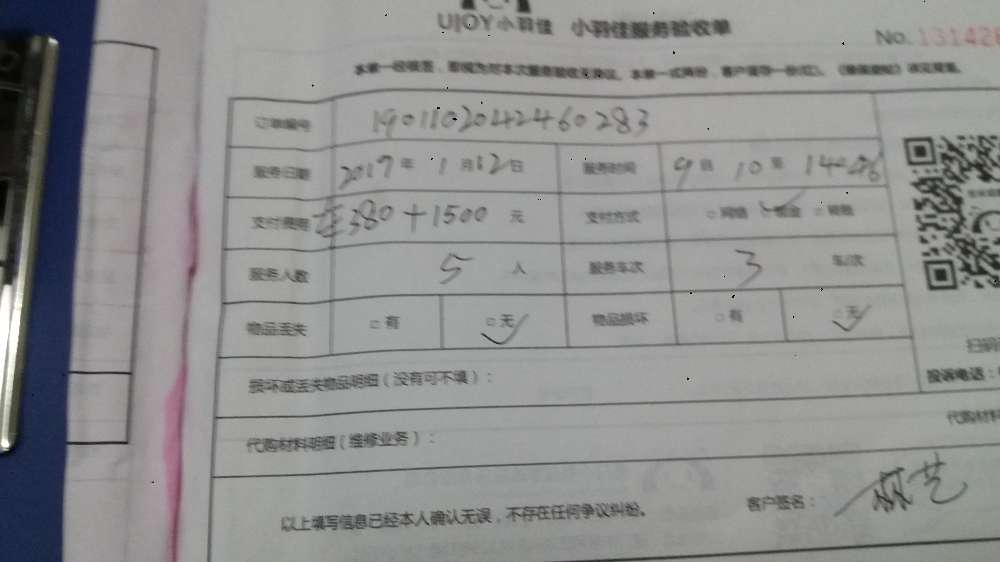 UJOY小羽佳 小羽佳服务验收单
No. 131426
本单一经签署,即视为对本次服务验收无异议。本单一式两份,客户留存一份
订单编号 1901102042460283
服务日期 2019年1月12日 服务时间 9 10
支付费用 1380+1500 元 支付方式 □网络 现金 □
服务人数 5 人 服务车次 3 车/次
物品丢失 □有 □无 物品损坏 □有 □无
扫码
损坏或丢失物品明细(没有可不填): 投诉电话:
代购材料明细(维修业务): 代购材料
以上填写信息已经本人确认无误,不存在任何争议纠纷。 客户签名: